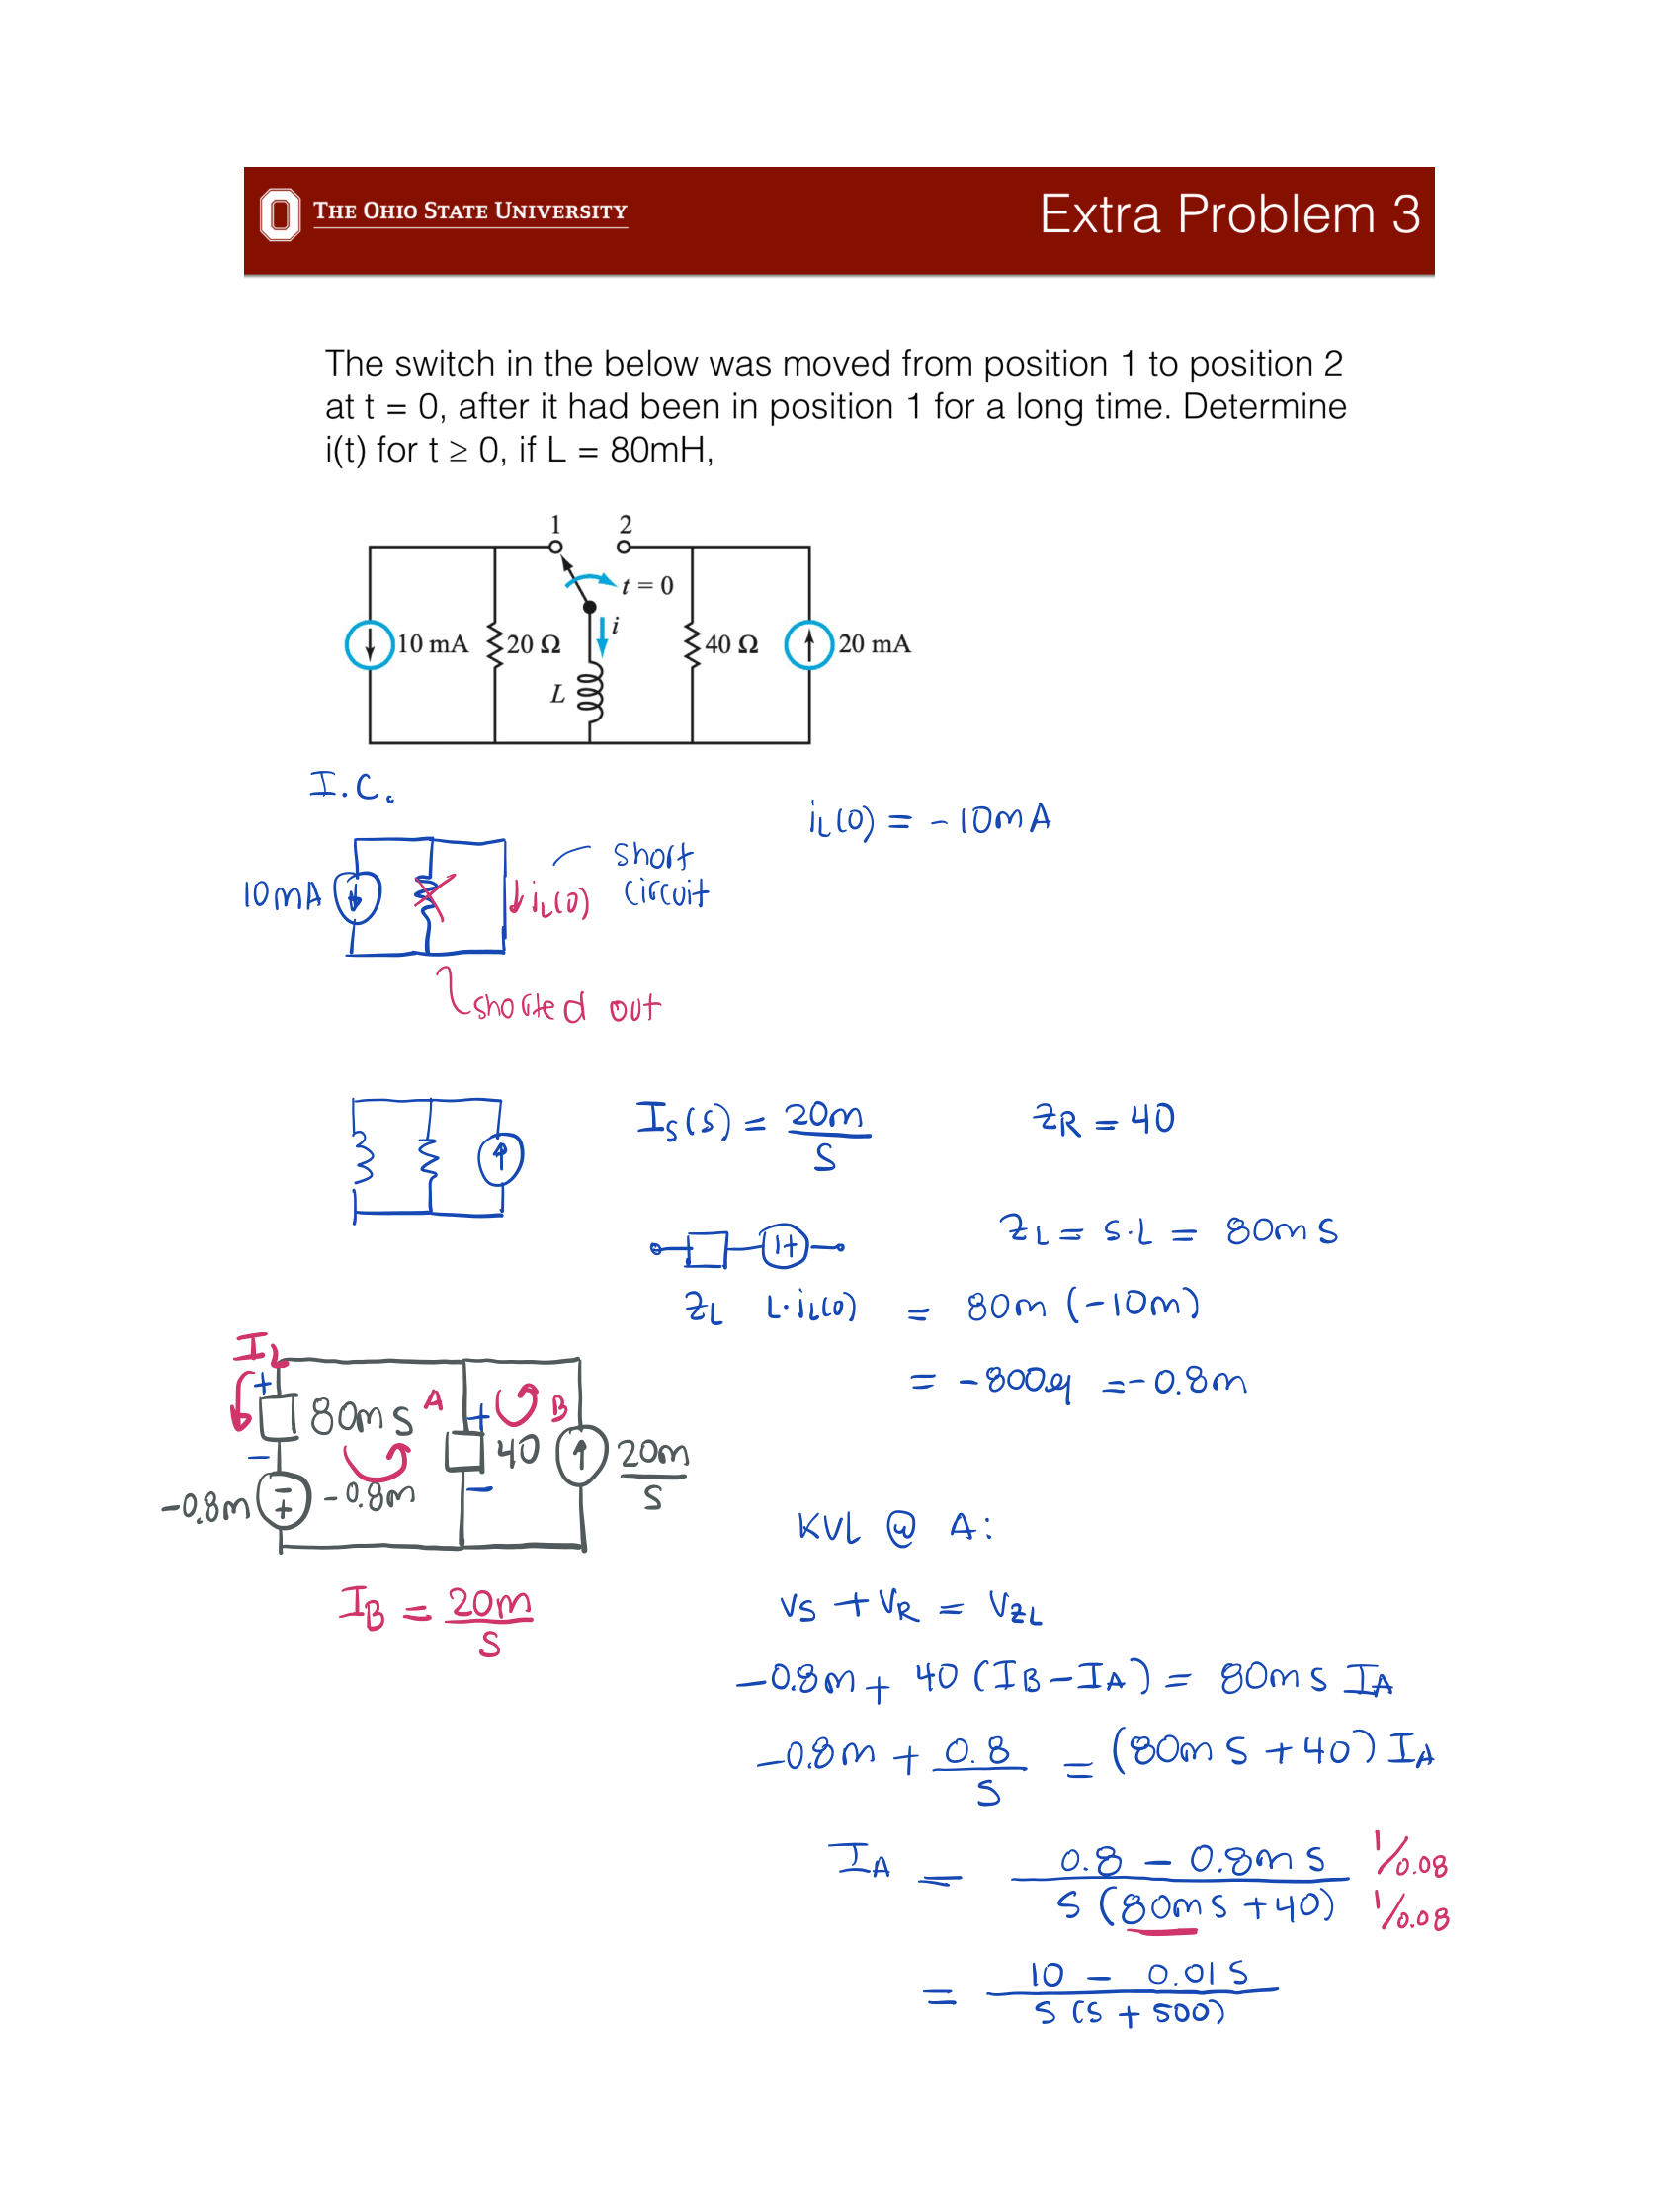 THE OHIO STATE UNIVERSITY
Extra Problem 3
The switch in the below was moved from position 1 to position 2
at t = 0, after it had been in position 1 for a long time. Determine
i(t) for t ≥ 0, if L = 80mH,
1 2
t = 0
i
10 mA 20 Ω 40 Ω 20 mA
L
I.C.
iL(0) = -10mA
short
circuit
10mA
iL(0)
shorted out
Is(s) = 20m/s
ZR = 40
ZL = s·L = 80ms
ZL L·iL(0) = 80m (-10m)
= -800µ = -0.8m
IL
80ms A B
40
20m/s
-0.8m -0.8m
IB = 20m/s
KVL @ A:
Vs + VR = VZL
-0.8m + 40 (IB - IA) = 80ms IA
-0.8m + 0.8/s = (80ms + 40) IA
IA = (0.8 - 0.8ms)/(s (80ms + 40)) 1/0.08 1/0.08
= (10 - 0.01s)/(s (s + 500))